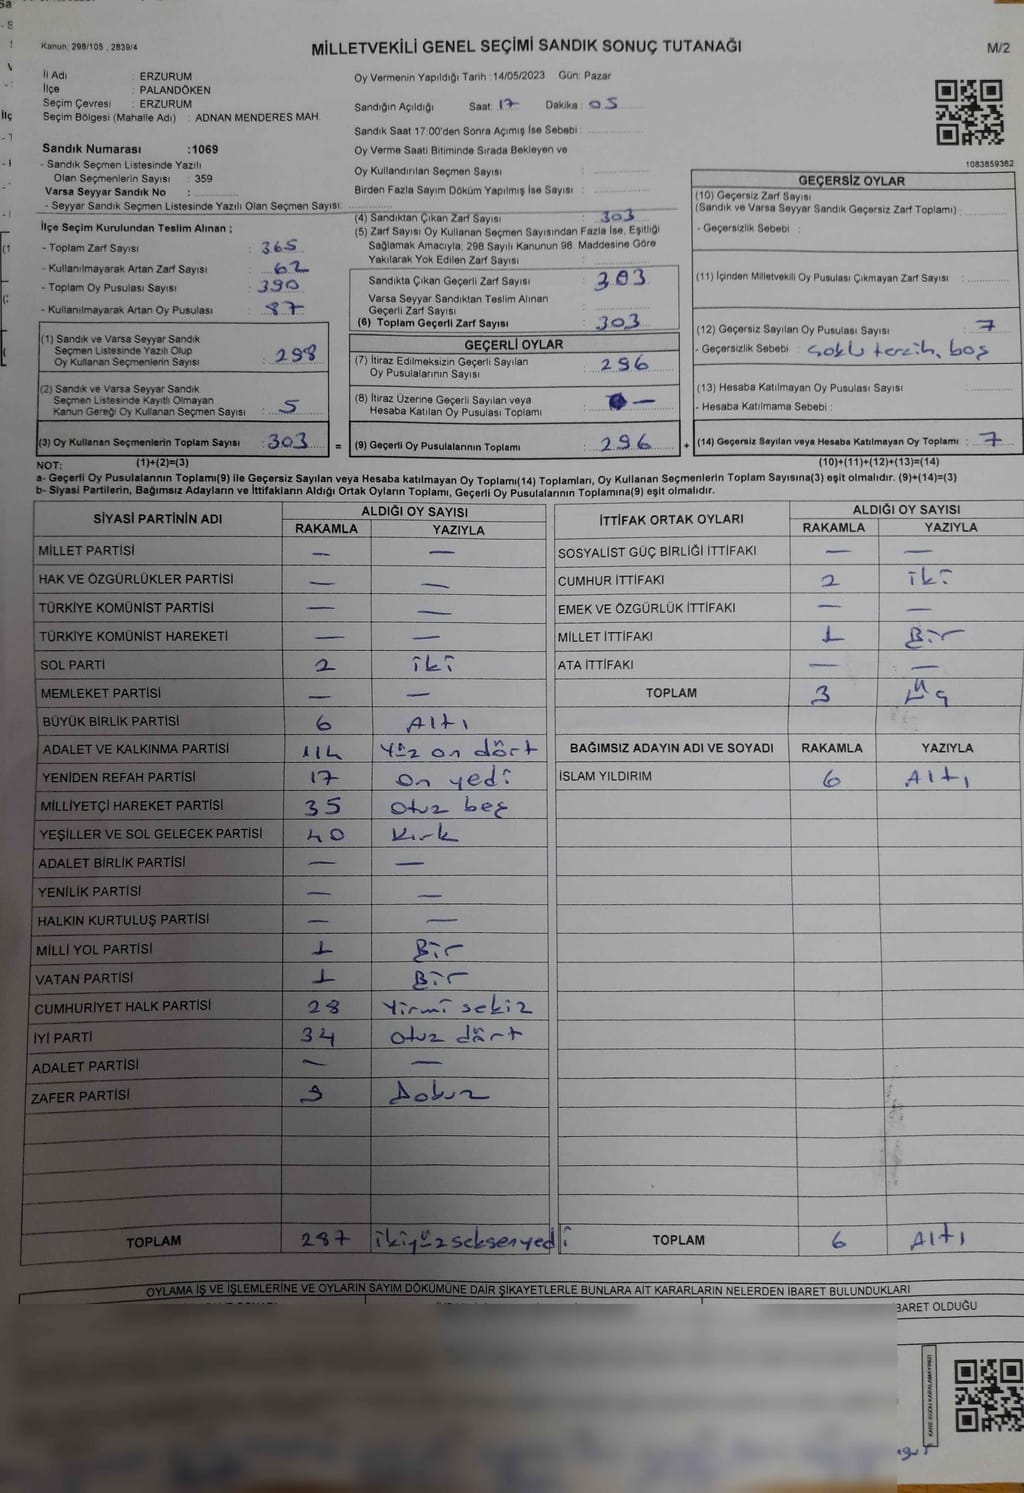 Kanun; 298/105 , 2839/4
MİLLETVEKİLİ GENEL SEÇİMİ SANDIK SONUÇ TUTANAĞI
M/2
İl Adı : ERZURUM
İlçe : PALANDÖKEN
Seçim Çevresi : ERZURUM
Seçim Bölgesi (Mahalle Adı) : ADNAN MENDERES MAH.
Sandık Numarası :1069
- Sandık Seçmen Listesinde Yazılı
Olan Seçmenlerin Sayısı : 359
Varsa Seyyar Sandık No :
- Seyyar Sandık Seçmen Listesinde Yazılı Olan Seçmen Sayısı:
Oy Vermenin Yapıldığı Tarih :14/05/2023 Gün: Pazar
Sandığın Açıldığı Saat: 17 Dakika : 05
Sandık Saat 17:00'den Sonra Açımış İse Sebebi :
Oy Verme Saati Bitiminde Sırada Bekleyen ve
Oy Kullandırılan Seçmen Sayısı :
Birden Fazla Sayım Döküm Yapılmış İse Sayısı :
1083859362
İlçe Seçim Kurulundan Teslim Alınan ;
- Toplam Zarf Sayısı : 365
- Kullanılmayarak Artan Zarf Sayısı : 62
- Toplam Oy Pusulası Sayısı : 390
- Kullanılmayarak Artan Oy Pusulası : 87
(1) Sandık ve Varsa Seyyar Sandık
Seçmen Listesinde Yazılı Olup
Oy Kullanan Seçmenlerin Sayısı : 298
(2) Sandık ve Varsa Seyyar Sandık
Seçmen Listesinde Kayıtlı Olmayan
Kanun Gereği Oy Kullanan Seçmen Sayısı : 5
(3) Oy Kullanan Seçmenlerin Toplam Sayısı : 303 =
(4) Sandıktan Çıkan Zarf Sayısı : 303
(5) Zarf Sayısı Oy Kullanan Seçmen Sayısından Fazla İse, Eşitliği
Sağlamak Amacıyla; 298 Sayılı Kanunun 98. Maddesine Göre
Yakılarak Yok Edilen Zarf Sayısı :
Sandıkta Çıkan Geçerli Zarf Sayısı : 303
Varsa Seyyar Sandıktan Teslim Alınan
Geçerli Zarf Sayısı :
(6) Toplam Geçerli Zarf Sayısı : 303
GEÇERLİ OYLAR
(7) İtiraz Edilmeksizin Geçerli Sayılan
Oy Pusulalarının Sayısı : 296
(8) İtiraz Üzerine Geçerli Sayılan veya
Hesaba Katılan Oy Pusulası Toplamı : —
(9) Geçerli Oy Pusulalarının Toplamı : 296 +
GEÇERSİZ OYLAR
(10) Geçersiz Zarf Sayısı
(Sandık ve Varsa Seyyar Sandık Geçersiz Zarf Toplamı) :
- Geçersizlik Sebebi :
(11) İçinden Milletvekili Oy Pusulası Çıkmayan Zarf Sayısı :
(12) Geçersiz Sayılan Oy Pusulası Sayısı : 7
- Geçersizlik Sebebi : Çoklu tercih, boş
(13) Hesaba Katılmayan Oy Pusulası Sayısı :
- Hesaba Katılmama Sebebi :
(14) Geçersiz Sayılan veya Hesaba Katılmayan Oy Toplamı : 7
NOT: (1)+(2)=(3) (10)+(11)+(12)+(13)=(14)
a- Geçerli Oy Pusulalarının Toplamı(9) ile Geçersiz Sayılan veya Hesaba katılmayan Oy Toplamı(14) Toplamları, Oy Kullanan Seçmenlerin Toplam Sayısına(3) eşit olmalıdır. (9)+(14)=(3)
b- Siyasi Partilerin, Bağımsız Adayların ve İttifakların Aldığı Ortak Oyların Toplamı, Geçerli Oy Pusulalarının Toplamına(9) eşit olmalıdır.
SİYASİ PARTİNİN ADI ALDIĞI OY SAYISI
RAKAMLA YAZIYLA
MİLLET PARTİSİ — —
HAK VE ÖZGÜRLÜKLER PARTİSİ — —
TÜRKİYE KOMÜNİST PARTİSİ — —
TÜRKİYE KOMÜNİST HAREKETİ — —
SOL PARTİ 2 iki
MEMLEKET PARTİSİ — —
BÜYÜK BİRLİK PARTİSİ 6 Altı
ADALET VE KALKINMA PARTİSİ 114 Yüz on dört
YENİDEN REFAH PARTİSİ 17 on yedi
MİLLİYETÇİ HAREKET PARTİSİ 35 otuz beş
YEŞİLLER VE SOL GELECEK PARTİSİ 40 Kırk
ADALET BİRLİK PARTİSİ — —
YENİLİK PARTİSİ — —
HALKIN KURTULUŞ PARTİSİ — —
MİLLİ YOL PARTİSİ 1 Bir
VATAN PARTİSİ 1 Bir
CUMHURİYET HALK PARTİSİ 28 Yirmi sekiz
İYİ PARTİ 34 otuz dört
ADALET PARTİSİ — —
ZAFER PARTİSİ 9 Dokuz
TOPLAM 287 ikiyüzseksenyedi
İTTİFAK ORTAK OYLARI ALDIĞI OY SAYISI
RAKAMLA YAZIYLA
SOSYALİST GÜÇ BİRLİĞİ İTTİFAKI — —
CUMHUR İTTİFAKI 2 iki
EMEK VE ÖZGÜRLÜK İTTİFAKI — —
MİLLET İTTİFAKI 1 Bir
ATA İTTİFAKI — —
TOPLAM 3 üç
BAĞIMSIZ ADAYIN ADI VE SOYADI RAKAMLA YAZIYLA
İSLAM YILDIRIM 6 Altı
TOPLAM 6 Altı
OYLAMA İŞ VE İŞLEMLERİNE VE OYLARIN SAYIM DÖKÜMÜNE DAİR ŞİKAYETLERLE BUNLARA AİT KARARLARIN NELERDEN İBARET BULUNDUKLARI
BARET OLDUĞU